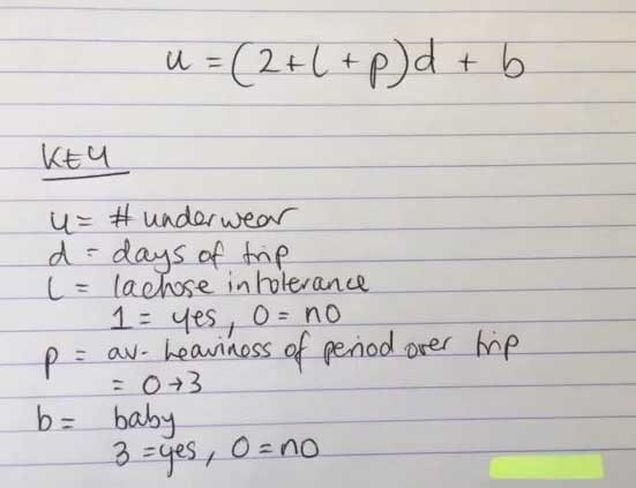 u = (2 + l + p)d + b
KEY
u = # underwear
d = days of trip
l = lactose intolerance
1 = yes, 0 = no
p = av. heaviness of period over trip
= 0→3
b = baby
3 = yes, 0 = no